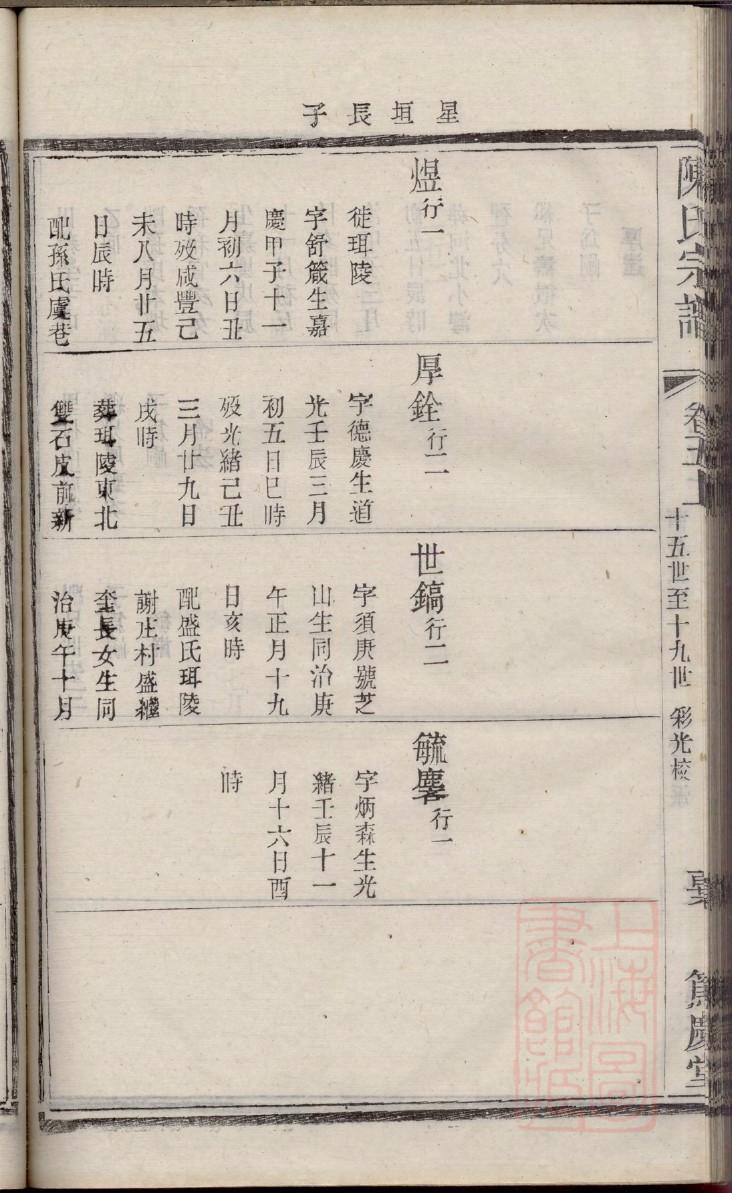 星垣長子
煜行一
徒珥陵
字舒箴生嘉
慶甲子十一
月初六日丑
時歿咸豐己
未八月廿五
日辰時
配孫氏虞巷
厚銓行二
字德慶生道
光壬辰三月
初五日巳時
歿光緒己丑
三月廿九日
戌時
葬珥陵東北
雙石皮前新
世鎬行二
字須庚號芝
山生同治庚
午正月十九
日亥時
配盛氏珥陵
謝庄村盛繼
奎長女生同
治庚午十月
毓麐行一
字炳森生光
緒壬辰十一
月十六日酉
時
陳氏宗譜
卷五上
十五世至十九世 彩光校
篤慶堂
上海圖
書館